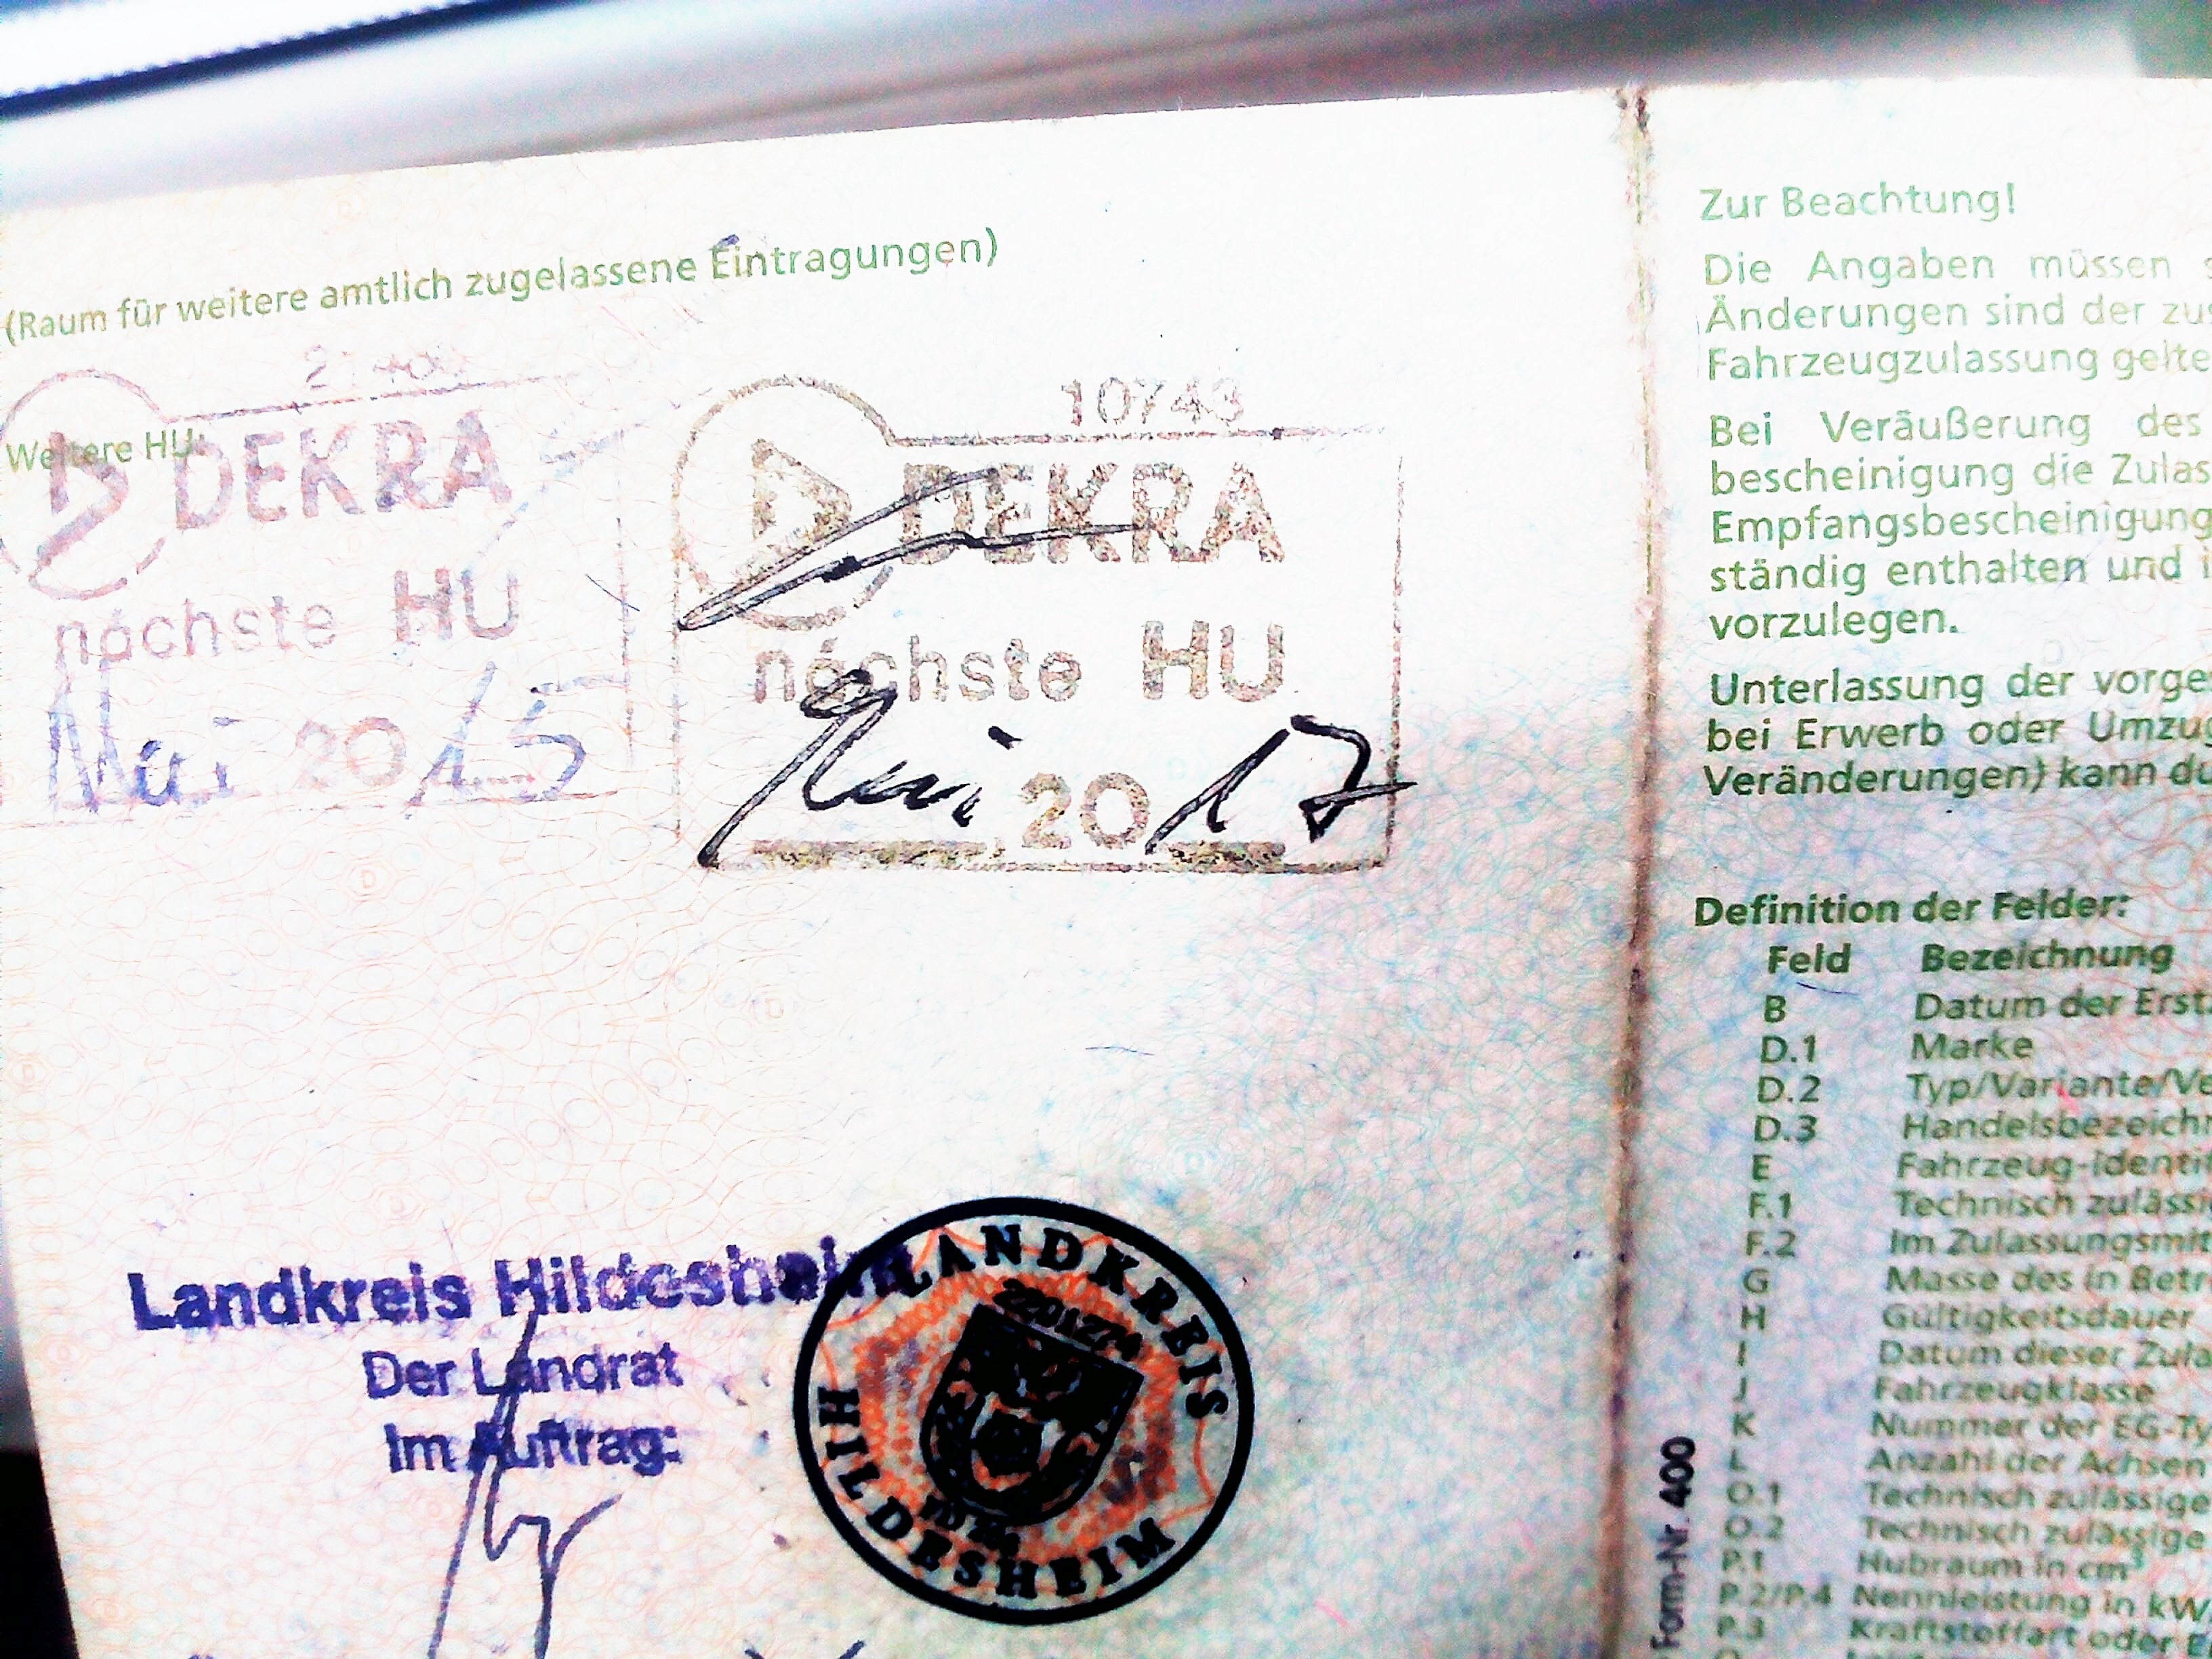 (Raum für weitere amtlich zugelassene Eintragungen)
Weitere HU:
DEKRA
nächste HU
Mai 2015
10743
DEKRA
nächste HU
Mai 2017
Landkreis Hildesheim
Der Landrat
Im Auftrag:
LANDKREIS
HILDESHEIM
Zur Beachtung!
Die Angaben müssen
Änderungen sind der
Fahrzeugzulassung
Bei Veräußerung des
bescheinigung die
Empfangsbescheinigung
ständig enthalten und
vorzulegen.
Unterlassung der
bei Erwerb oder
Veränderungen) kann
Definition der Felder:
Feld Bezeichnung
B Datum der
D.1 Marke
D.2 Typ/Variante/
D.3
E
F.1 Technisch
F.2 Im
G Masse des in
H Gültigkeitsdauer
I Datum dieser
J Fahrzeugklasse
K Nummer der
L Anzahl der Achsen
O.1 Technisch zulässige
O.2 Technisch zulässige
P.1 Hubraum in cm³
P.2/P.4 Nennleistung in
P.3 Kraftstoffart oder
Form-Nr. 400